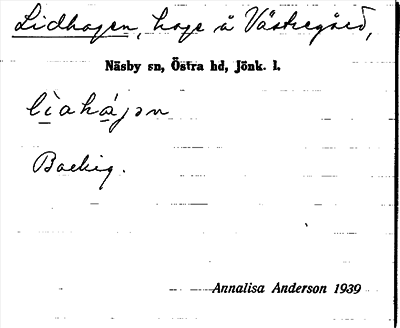 Lidhagen, hage å Västergård,
Näsby sn, Östra hd, Jönk. l.
lìahájən
Backig.
Annalisa Anderson 1939